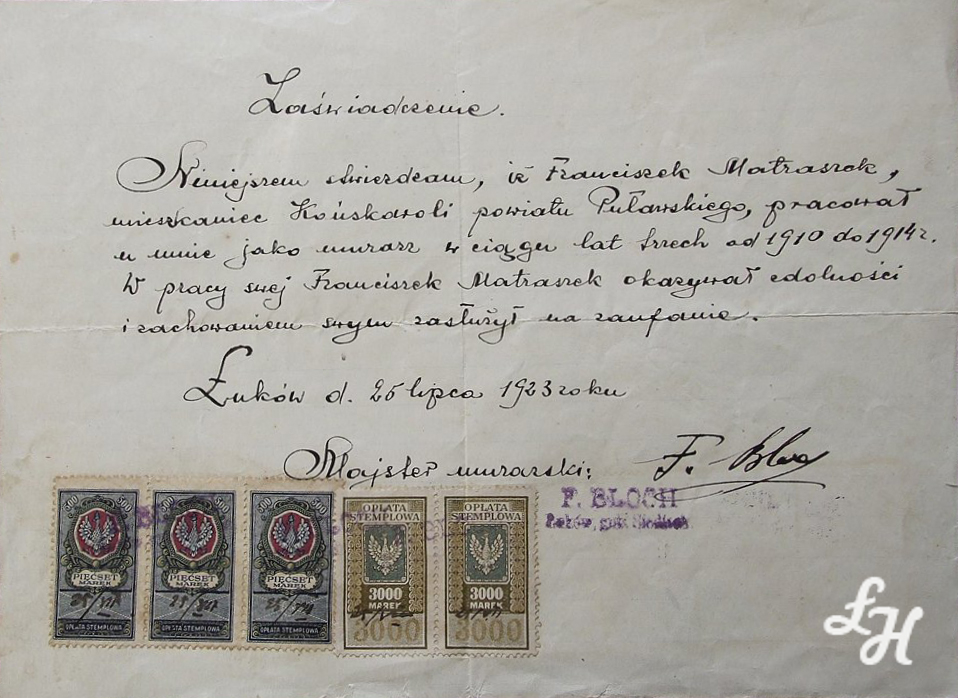 Zaświadczenie.
Niniejszem stwierdzam, iż Franciszek Matraszek,
mieszkaniec Końskowoli powiatu Puławskiego, pracował
u mnie jako murarz w ciągu lat trzech od 1910 do 1914 r.
W pracy swej Franciszek Matraszek okazywał zdolności
i zachowaniem swym zasłużył na zaufanie.
Łuków d. 25 lipca 1923 roku
Majster murarski: F. Bloch
F. BLOCH
500 500
PIĘĆSET
MAREK
25/VII
OPŁATA STEMPLOWA
500 500
PIĘĆSET
MAREK
25/VII
OPŁATA STEMPLOWA
500 500
PIĘĆSET
MAREK
25/VII
OPŁATA STEMPLOWA
OPŁATA
STEMPLOWA
3000
MAREK
3000
OPŁATA
STEMPLOWA
3000
MAREK
3000
ŁH